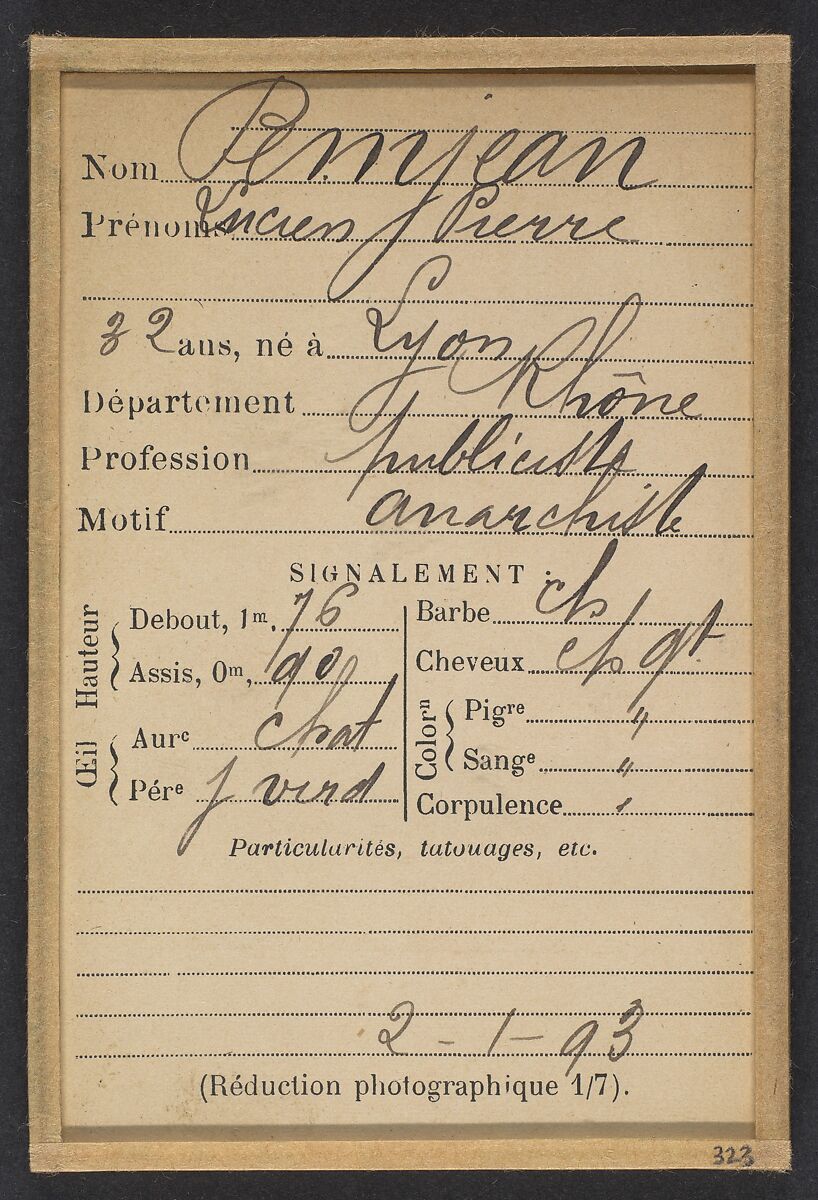 Nom Pemjean
Prénoms Lucien Pierre
32 ans, né à Lyon
Département Rhône
Profession publiciste
Motif anarchiste
SIGNALEMENT :
Hauteur
Debout, 1m, 76
Assis, 0m, 90
Œil
Aurᶜ chat
Pérᵉ j verd
Barbe ch
Cheveux ch gt
Colorⁿ
Pigʳᵉ "
Sangᵉ "
Corpulence '
Particularités, tatouages, etc.
2 - 1 - 93
(Réduction photographique 1/7).
323